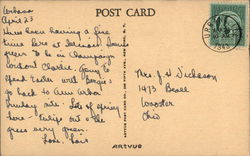 POST CARD
Urbana
April 23
Have been having a fine
time here at
green to be in Champaign
without Charlie. Going to
spend Easter with Bergie &
go back to Ann Arbor
Sunday nite. Lots of spring
here. Tulips out & the
grass very green.
Love, Lois
Mrs J H Dickason
1473 Beall
Wooster
Ohio
ARTVUE